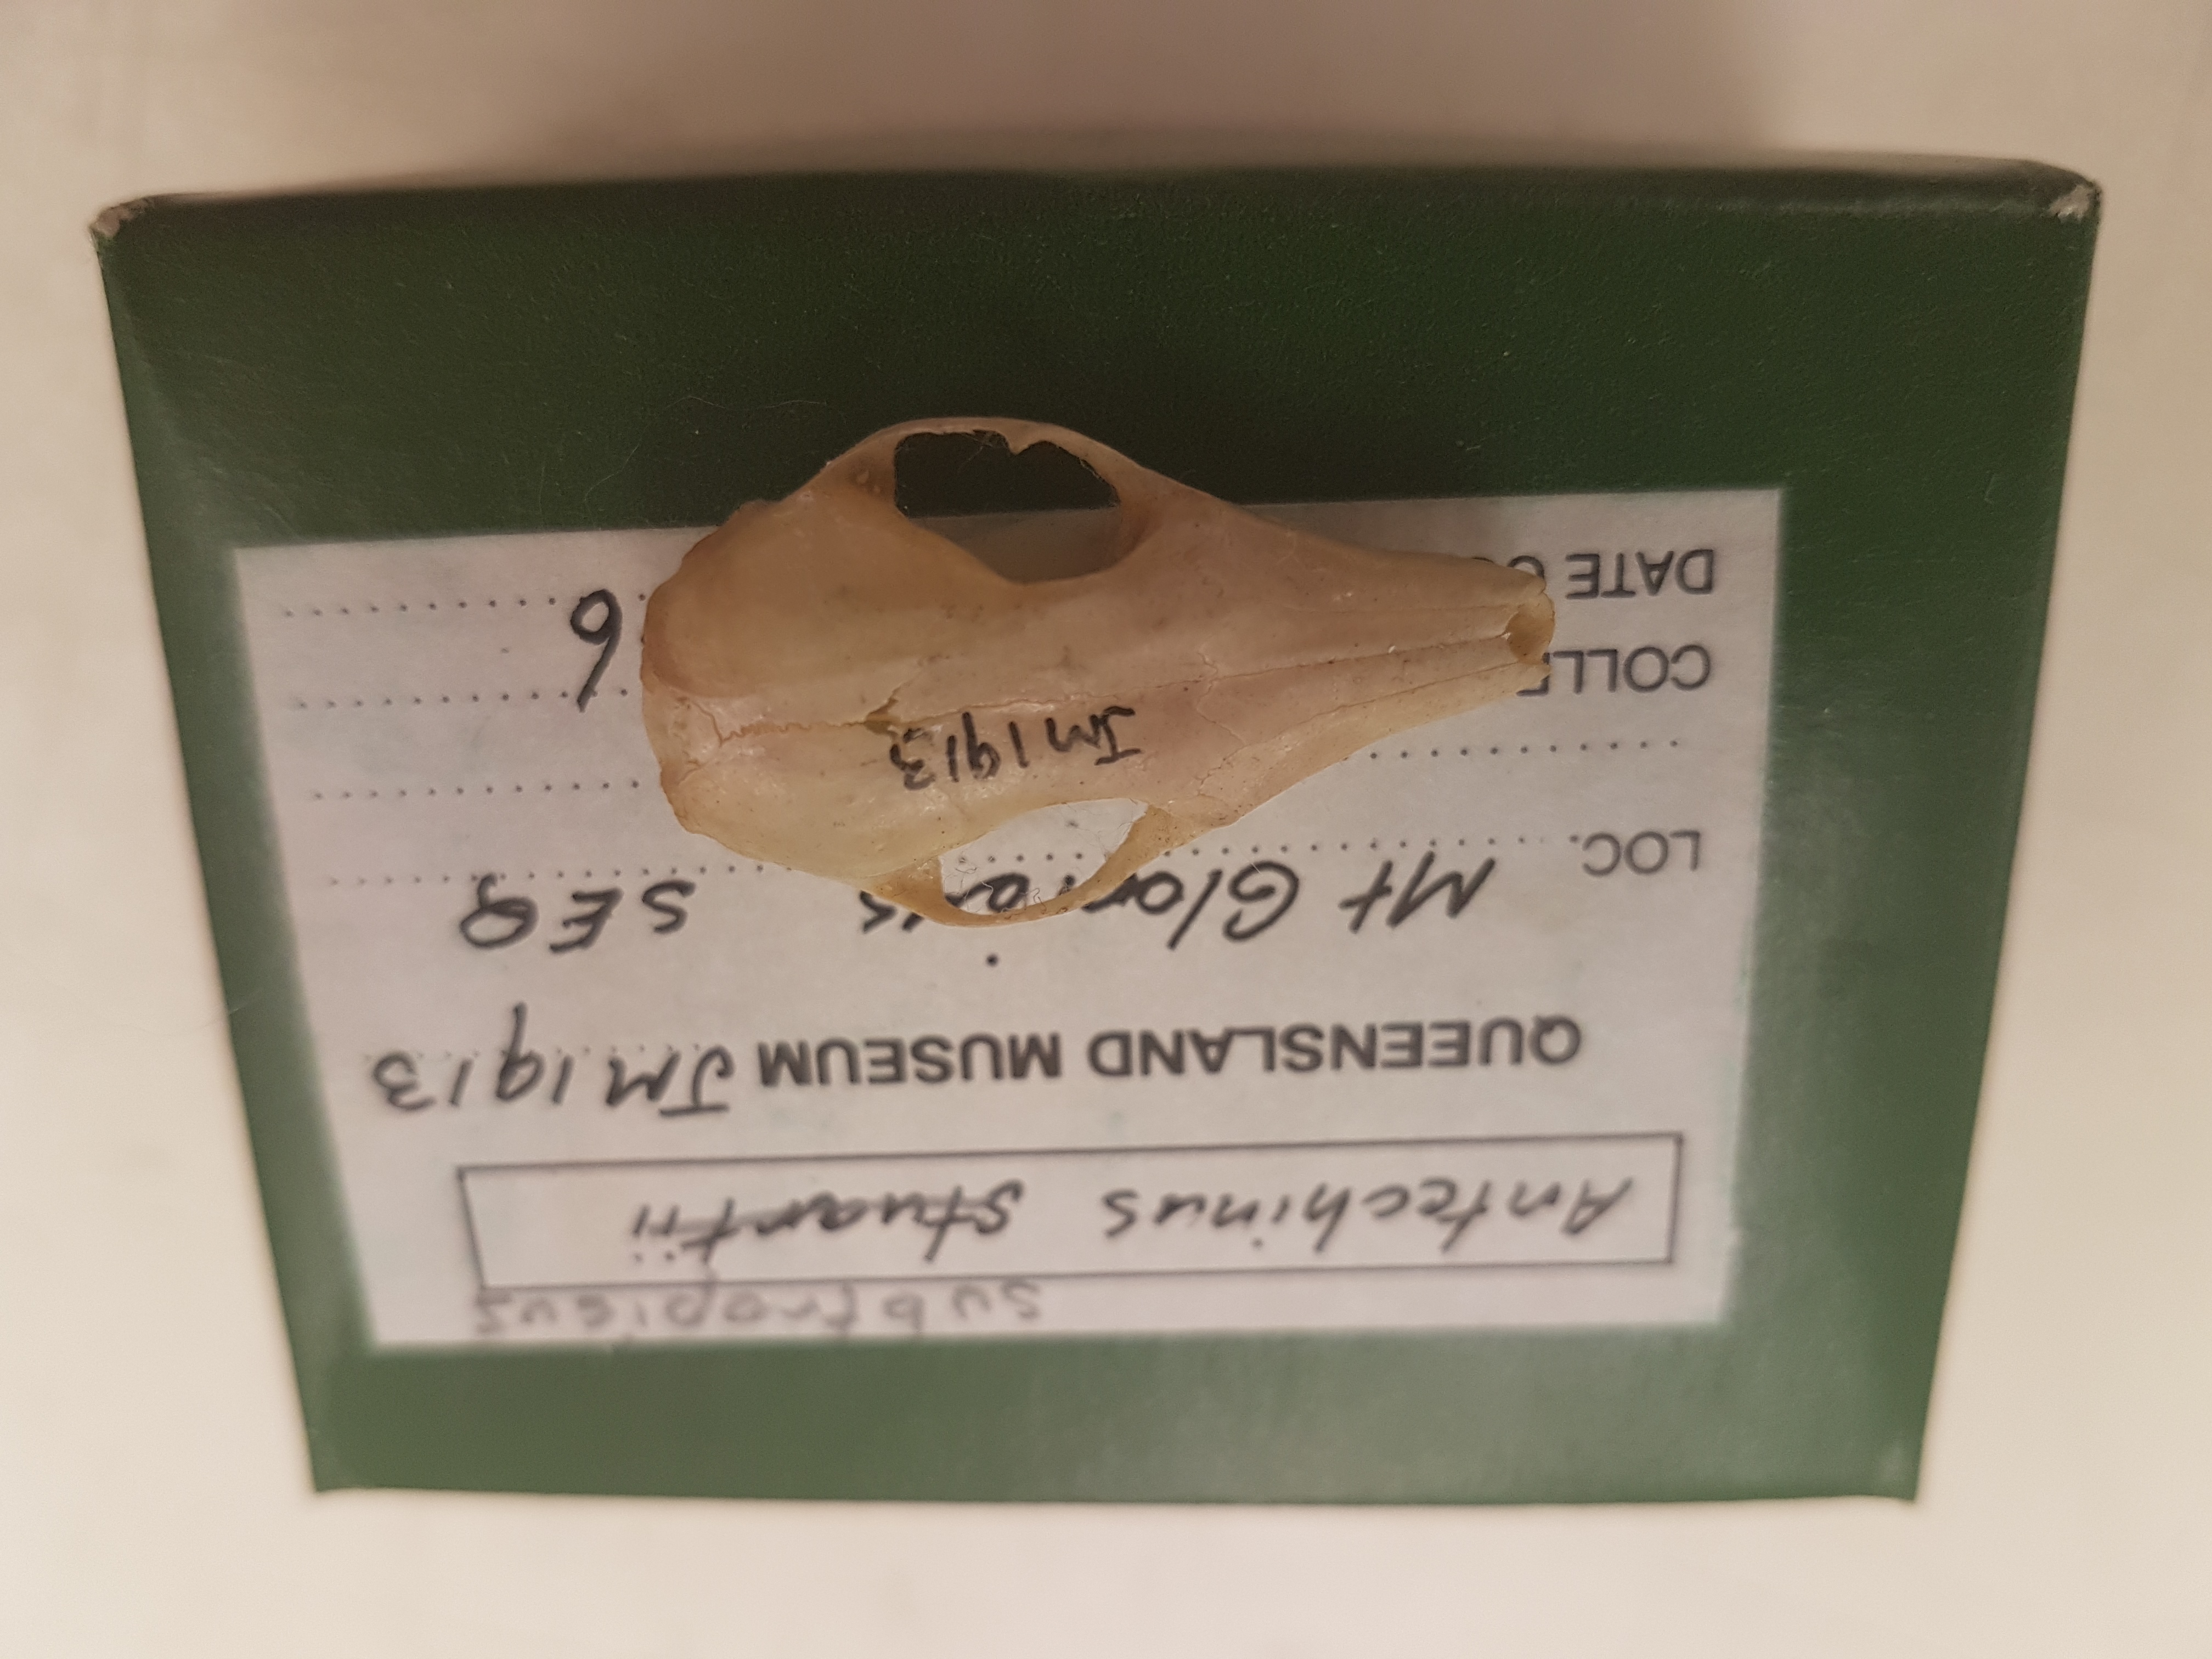 subtropicus
Antechinus stuartii
QUEENSLAND MUSEUM JM1913
LOC. Mt Glorious SEQ
JM1913
COLLE
DATE
6